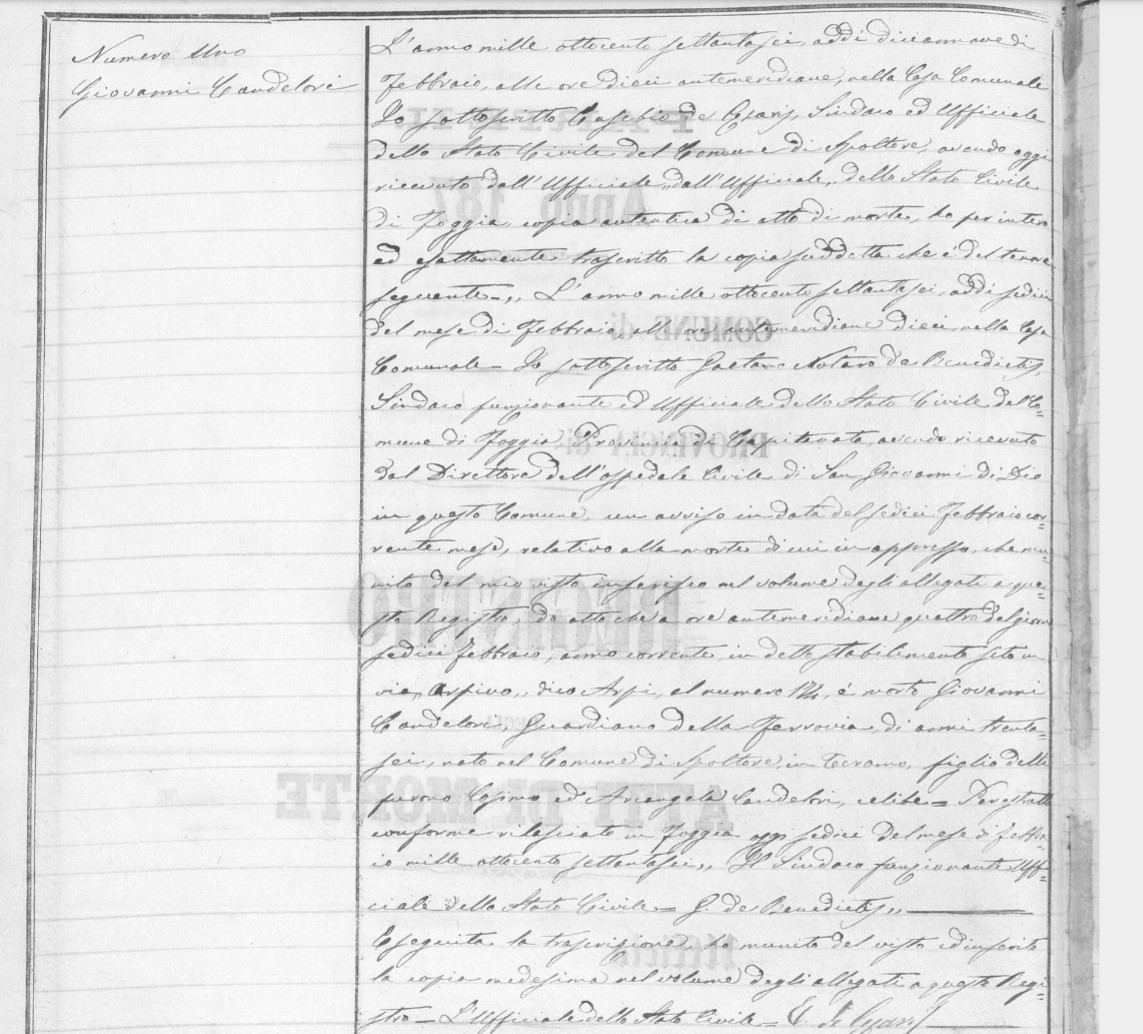 Numero Uno
Giovanni Candelori
L'anno mille ottocento settantasei, addì diciannove di
Febbraio, alle ore dieci antemeridiane, nella Casa Comunale
Io sottoscritto Eusebio de Cesaris, Sindaco ed Ufficiale
dello Stato Civile del Comune di Spoltore, avendo oggi
ricevuto dall'Ufficiale, dall'Ufficiale, dello Stato Civile
di Foggia, copia autentica di atto di morte, ho per intero
ed esattamente trascritto la copia suddetta che è del tenore
seguente =,, L'anno mille ottocento settantasei, addì sedici
del mese di Febbraio, alle ore antemeridiane dieci, nella Casa
Comunale = Io sottoscritto Gaetano Notaro de Benedictis,
Sindaco funzionante ed Ufficiale dello Stato Civile del Co=
mune di Foggia, Provincia di Capitanata, avendo ricevuto
dal Direttore dell'ospedale Civile di San Giovanni di Dio
in questo Comune, un avviso in data del sedici Febbraio cor=
rente mese, relativo alla morte di cui in appresso, che mu=
nito del mio visto inserisco nel volume degli allegati a que=
sto Registro, do atto che a ore antemeridiane quattro del giorno
sedici Febbraio, anno corrente, in detto stabilimento sito in
via, Arpivo,, dico Arpi, al numero è morto Giovanni
Candelori, Guardiano della Ferrovia, di anni trenta=
sei, nato nel Comune di Spoltore, in Teramo, figlio delli
furono Cosimo ed Arcangela Candelori, celibe =
conforme rilasciato in Foggia oggi sedici del mese di febbra=
io mille ottocento settantasei,, Il Sindaco funzionante Uffi=
ciale dello Stato Civile = G. de Benedictis,,
Eseguita la trascrizione, ho munito del visto ed inserito
la copia medesima nel volume degli allegati a questo Regi=
stro = L'Ufficiale dello Stato Civile = E. de Cesaris